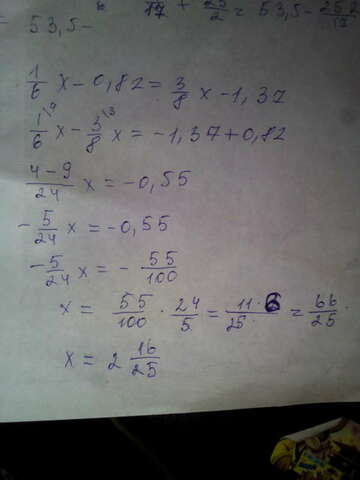 17 + 23/2 = 53,5 - 252/17
53,5-
1/6 x - 0,82 = 3/8 x - 1,37
1\4/6 x - 3\3/8 x = -1,37 + 0,82
4 - 9/24 x = -0,55
- 5/24 x = -0,55
- 5/24 x = - 55/100
x = 55/100 · 24/5 = 11·6/25· = 66/25
x = 2 16/25